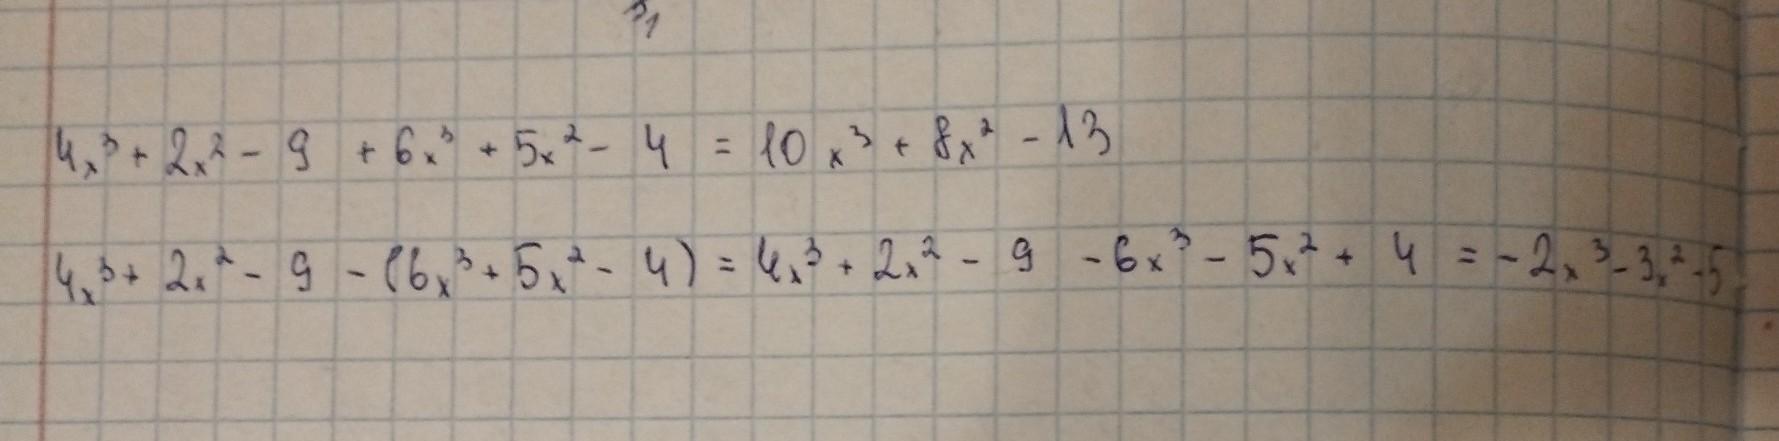 4x³ + 2x² - 9 + 6x³ + 5x² - 4 = 10x³ + 8x² - 13
4x³ + 2x² - 9 - (6x³ + 5x² - 4) = 4x³ + 2x² - 9 - 6x³ - 5x² + 4 = -2x³ - 3x² - 5